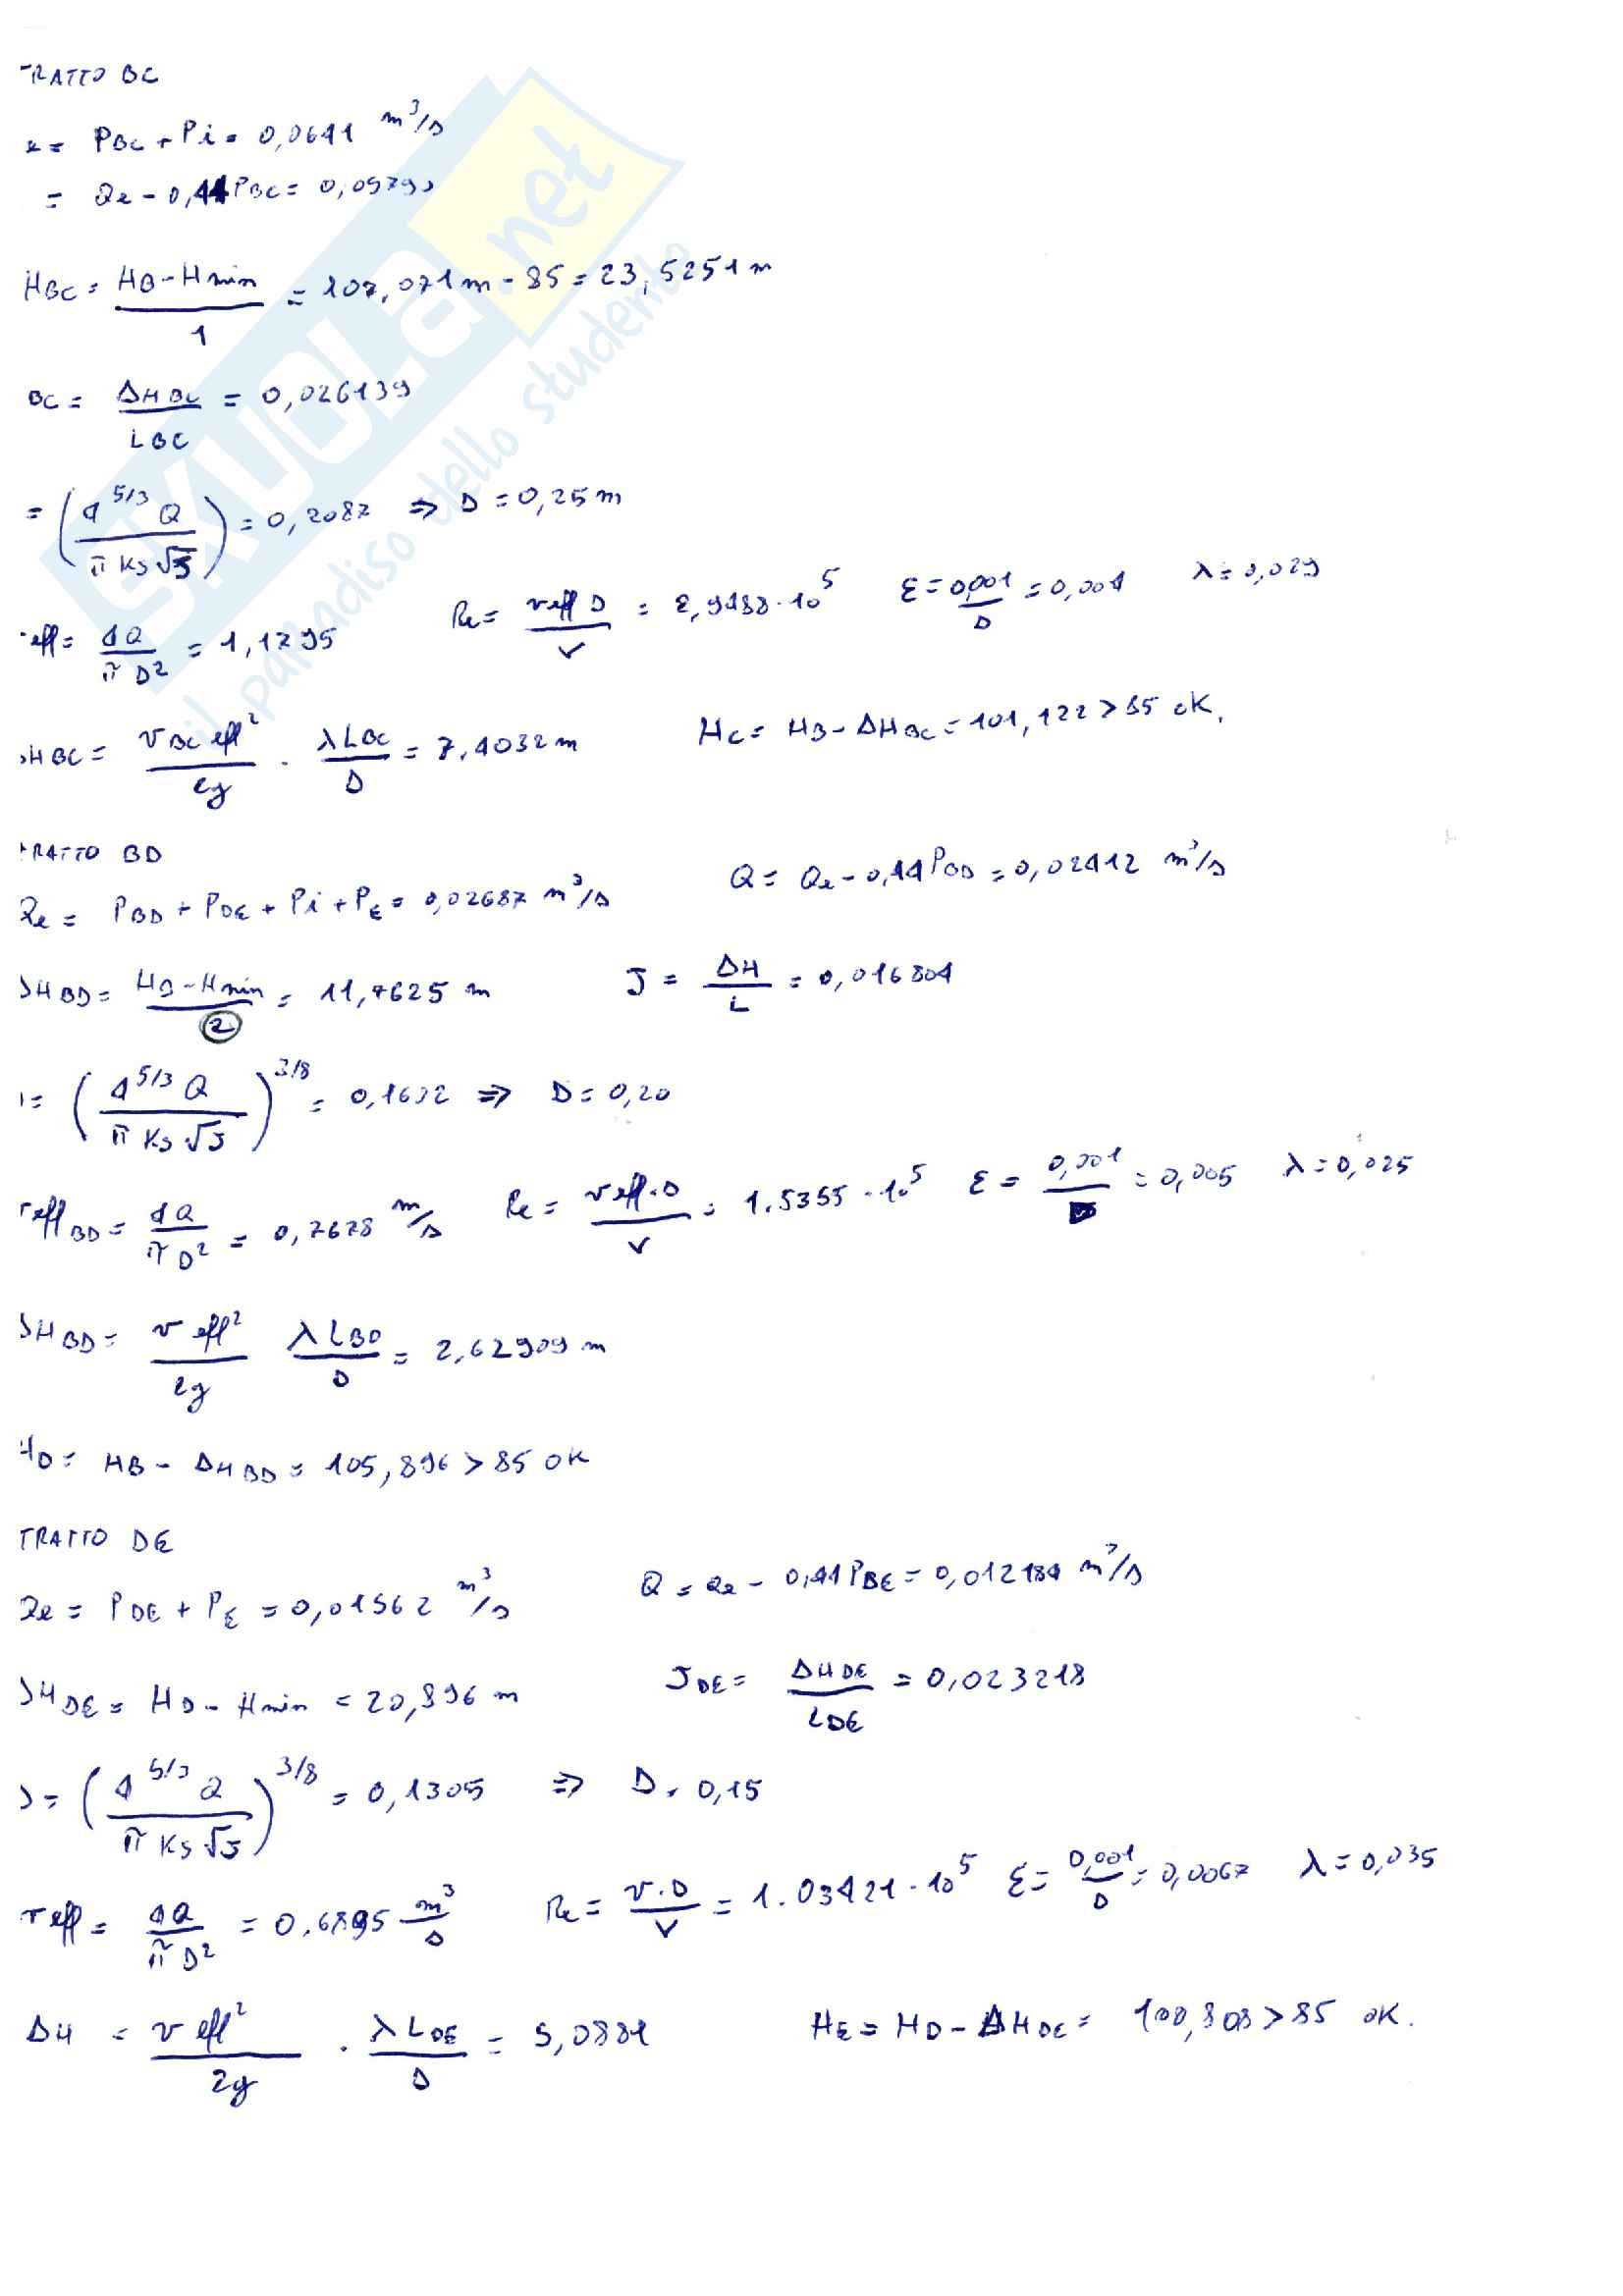 TRATTO BC
= PBC + Pi = 0,0641 m³/s
= Qe - 0,44 PBC = 0,0579
HBC = (HB - Hmin)/1 = 107,071 m - 85 = 23,5251 m
BC = ΔHBC/LBC = 0,026139
= (4^5/3 Q / π Ks √J) = 0,2087 ⇒ D = 0,25 m
eff = 4Q/πD² = 1,1795 Re = veff D/ν = 2,9488·10⁵ ε = 0,001/D = 0,004 λ = 0,029
HBC = vBC eff²/2g · λLBC/D = 7,4032 m HC = HB - ΔHBC = 101,122 > 85 OK.
TRATTO BD
Qe = PBD + PDE + Pi + PE = 0,02687 m³/s Q = Qe - 0,44 PBD = 0,02412 m³/s
ΔHBD = (HB - Hmin)/2 = 11,7625 m J = ΔH/L = 0,016804
= (4^5/3 Q / π Ks √J)^3/8 = 0,1632 ⇒ D = 0,20
veff BD = 4Q/πD² = 0,7678 m/s Re = veff·D/ν = 1.5355·10⁵ ε = 0,001/D = 0,005 λ = 0,025
ΔHBD = veff²/2g λLBD/D = 2,62909 m
HD = HB - ΔHBD = 105,896 > 85 OK
TRATTO DE
Qe = PDE + PE = 0,01562 m³/s Q = Qe - 0,44 PDE = 0,012184 m³/s
ΔHDE = HD - Hmin = 20,896 m JDE = ΔHDE/LDE = 0,023218
D = (4^5/3 Q / π Ks √J)^3/8 = 0,1305 ⇒ D = 0,15
veff = 4Q/πD² = 0.6895 m³/s Re = v·D/ν = 1.03421·10⁵ ε = 0,001/D = 0,0067 λ = 0,035
ΔH = veff²/2g · λLDE/D = 5,0881 HE = HD - ΔHDE = 100,808 > 85 OK.
SKUOLA.net
il paradiso dello studente